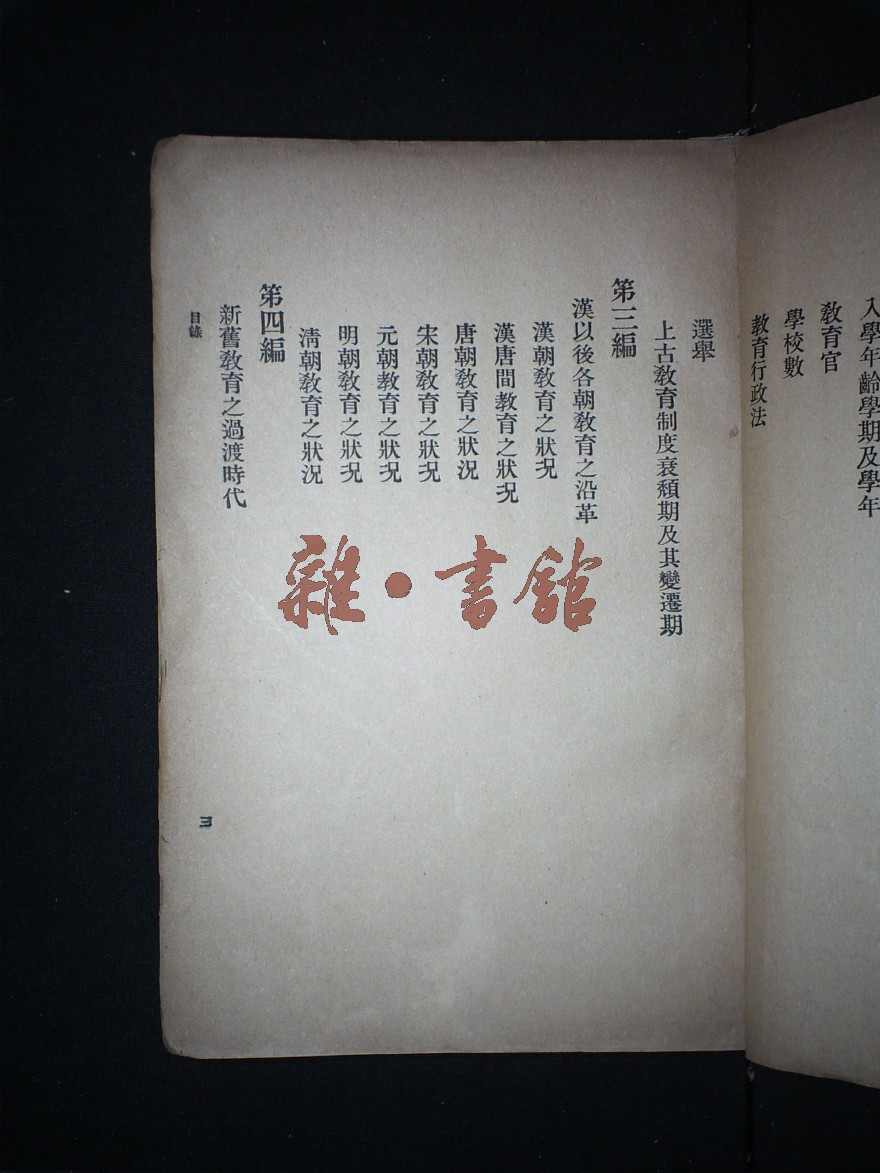 入學年齡學期及學年
教育官
學校數
教育行政法
選舉
上古教育制度衰頹期及其變遷期
第三編
漢以後各朝教育之沿革
漢朝教育之狀況
漢唐間教育之狀況
唐朝教育之狀況
宋朝教育之狀況
元朝教育之狀況
明朝教育之狀況
清朝教育之狀況
第四編
新舊教育之過渡時代
目錄
三
雜·書館